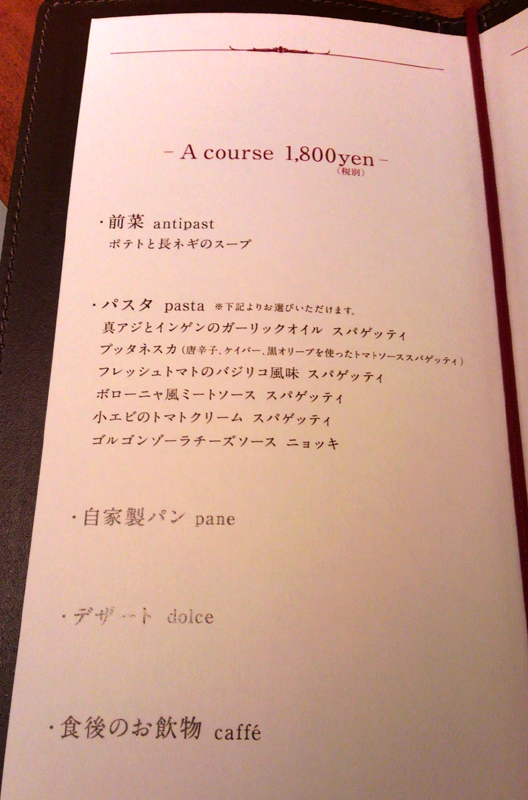 – A course 1,800yen –
(税別)
・前菜 antipast
ポテトと長ネギのスープ
・パスタ pasta ※下記よりお選びいただけます。
真アジとインゲンのガーリックオイル スパゲッティ
プッタネスカ(唐辛子、ケイパー、黒オリーブを使ったトマトソーススパゲッティ)
フレッシュトマトのバジリコ風味 スパゲッティ
ボローニャ風ミートソース スパゲッティ
小エビのトマトクリーム スパゲッティ
ゴルゴンゾーラチーズソース ニョッキ
・自家製パン pane
・デザート dolce
・食後のお飲物 caffé